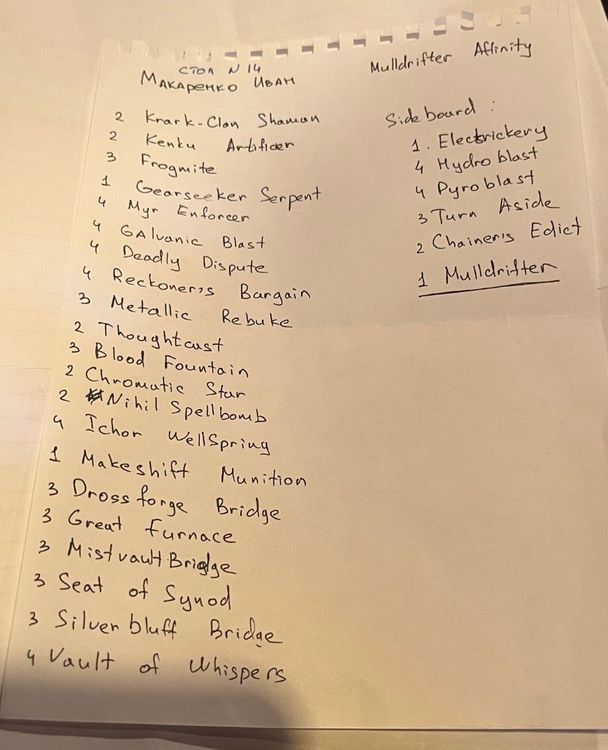 СТОЛ N 14
МАКАРЕМКО ИВАН
2 Krark-Clan Shaman
2 Kenku Artificer
3 Frogmite
1 Gearseeker Serpent
4 Myr Enforcer
4 GAlvanic Blast
4 Deadly Dispute
4 Reckoner,s Bargain
3 Metallic Rebuke
2 Thoughtcast
3 Blood Fountain
2 Chromatic Star
2 Nihil Spellbomb
4 Ichor WellSpring
1 Makeshift Munition
3 Drossforge Bridge
3 Great furnace
3 Mistvault Bridge
3 Seat of Synod
3 Silverbluff Bridge
4 Vault of Whispers
Mulldrifter Affinity
Sideboard :
1. Electrickery
4 Hydroblast
4 Pyroblast
3 Turn Aside
2 Chainer,s Edict
1 Mulldrifter